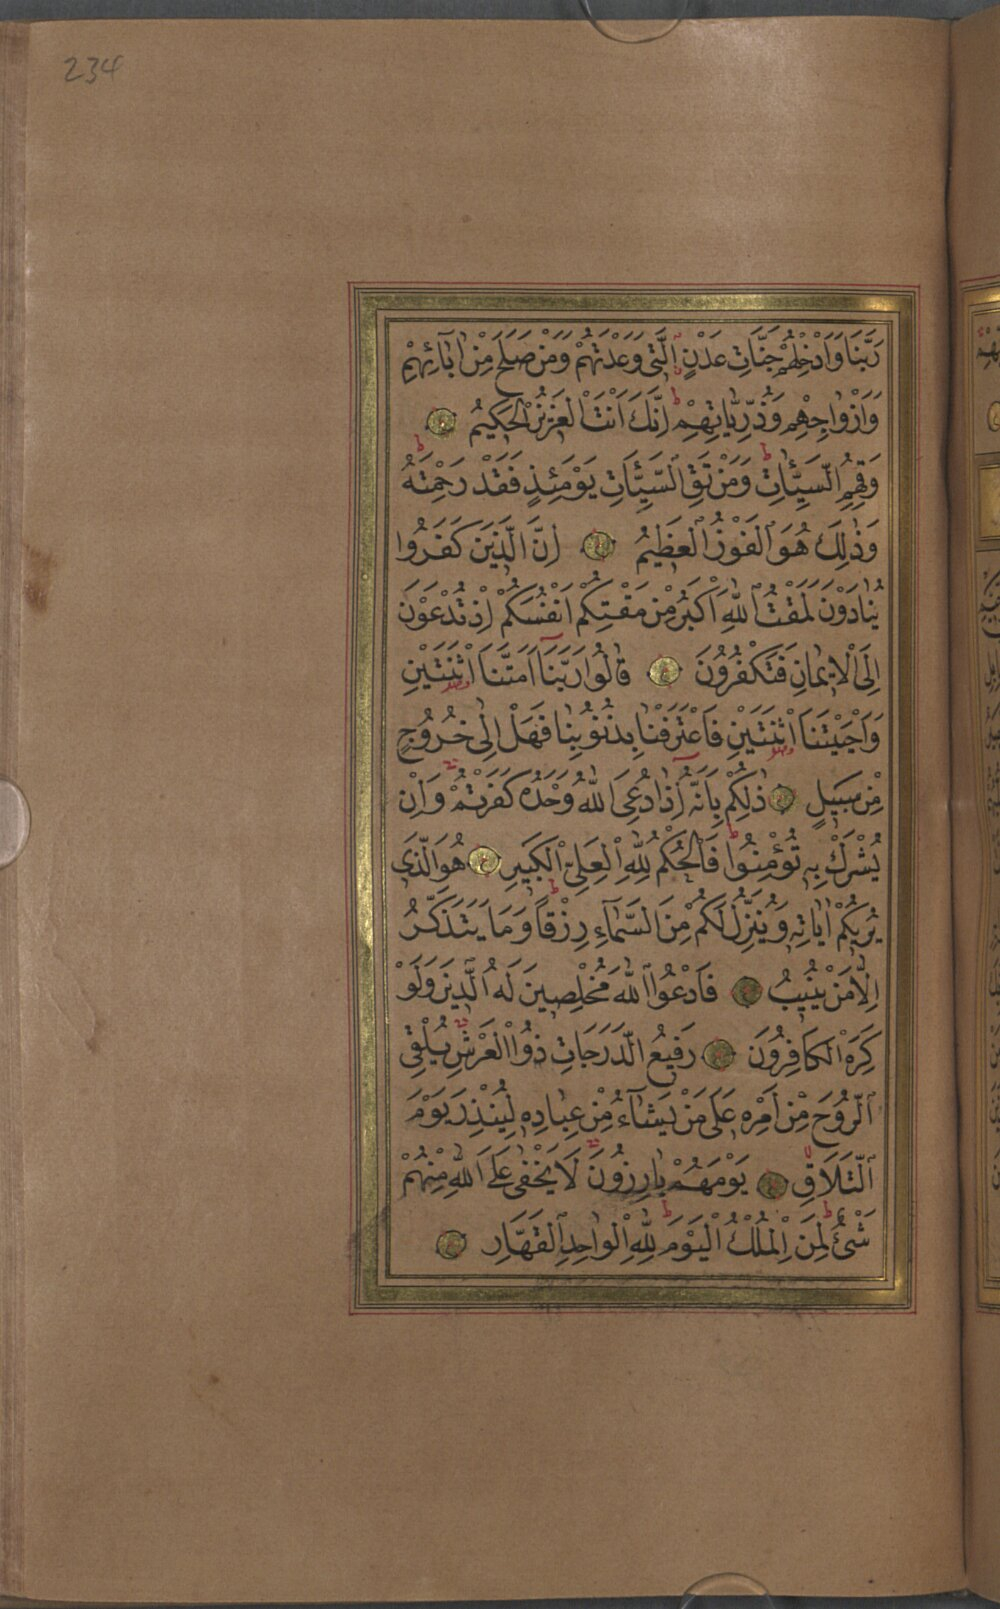 234
رَبَّنَا وَاَدْخِلْهُمْ جَنَّاتِ عَدْنٍ الَّتِي وَعَدْتَهُمْ وَمَنْ صَلَحَ مِنْ اٰبَائِهِمْ
وَاَزْوَاجِهِمْ وَذُرِّيَّاتِهِمْ اِنَّكَ اَنْتَ الْعَزِيزُ الْحَكِيمُ
وَقِهِمُ السَّيِّئَاتِ وَمَنْ تَقِ السَّيِّئَاتِ يَوْمَئِذٍ فَقَدْ رَحِمْتَهُ
وَذٰلِكَ هُوَ الْفَوْزُ الْعَظِيمُ اِنَّ الَّذِينَ كَفَرُوا
يُنَادَوْنَ لَمَقْتُ اللّٰهِ اَكْبَرُ مِنْ مَقْتِكُمْ اَنْفُسَكُمْ اِذْ تُدْعَوْنَ
اِلَى الْاِيمَانِ فَتَكْفُرُونَ قَالُوا رَبَّنَا اَمَتَّنَا اثْنَتَيْنِ
وَاَحْيَيْتَنَا اثْنَتَيْنِ فَاعْتَرَفْنَا بِذُنُوبِنَا فَهَلْ اِلٰى خُرُوجٍ
مِنْ سَبِيلٍ ذٰلِكُمْ بِاَنَّهُ اِذَا دُعِيَ اللّٰهُ وَحْدَهُ كَفَرْتُمْ وَاِنْ
يُشْرَكْ بِهِ تُؤْمِنُوا فَالْحُكْمُ لِلّٰهِ الْعَلِيِّ الْكَبِيرِ هُوَ الَّذِي
يُرِيكُمْ اٰيَاتِهِ وَيُنَزِّلُ لَكُمْ مِنَ السَّمَآءِ رِزْقًا وَمَا يَتَذَكَّرُ
اِلَّا مَنْ يُنِيبُ فَادْعُوا اللّٰهَ مُخْلِصِينَ لَهُ الدِّينَ وَلَوْ
كَرِهَ الْكَافِرُونَ رَفِيعُ الدَّرَجَاتِ ذُو الْعَرْشِ يُلْقِي
الرُّوحَ مِنْ اَمْرِهِ عَلٰى مَنْ يَشَآءُ مِنْ عِبَادِهِ لِيُنْذِرَ يَوْمَ
التَّلَاقِ يَوْمَ هُمْ بَارِزُونَ لَا يَخْفٰى عَلَى اللّٰهِ مِنْهُمْ
شَيْءٌ لِمَنِ الْمُلْكُ الْيَوْمَ لِلّٰهِ الْوَاحِدِ الْقَهَّارِ